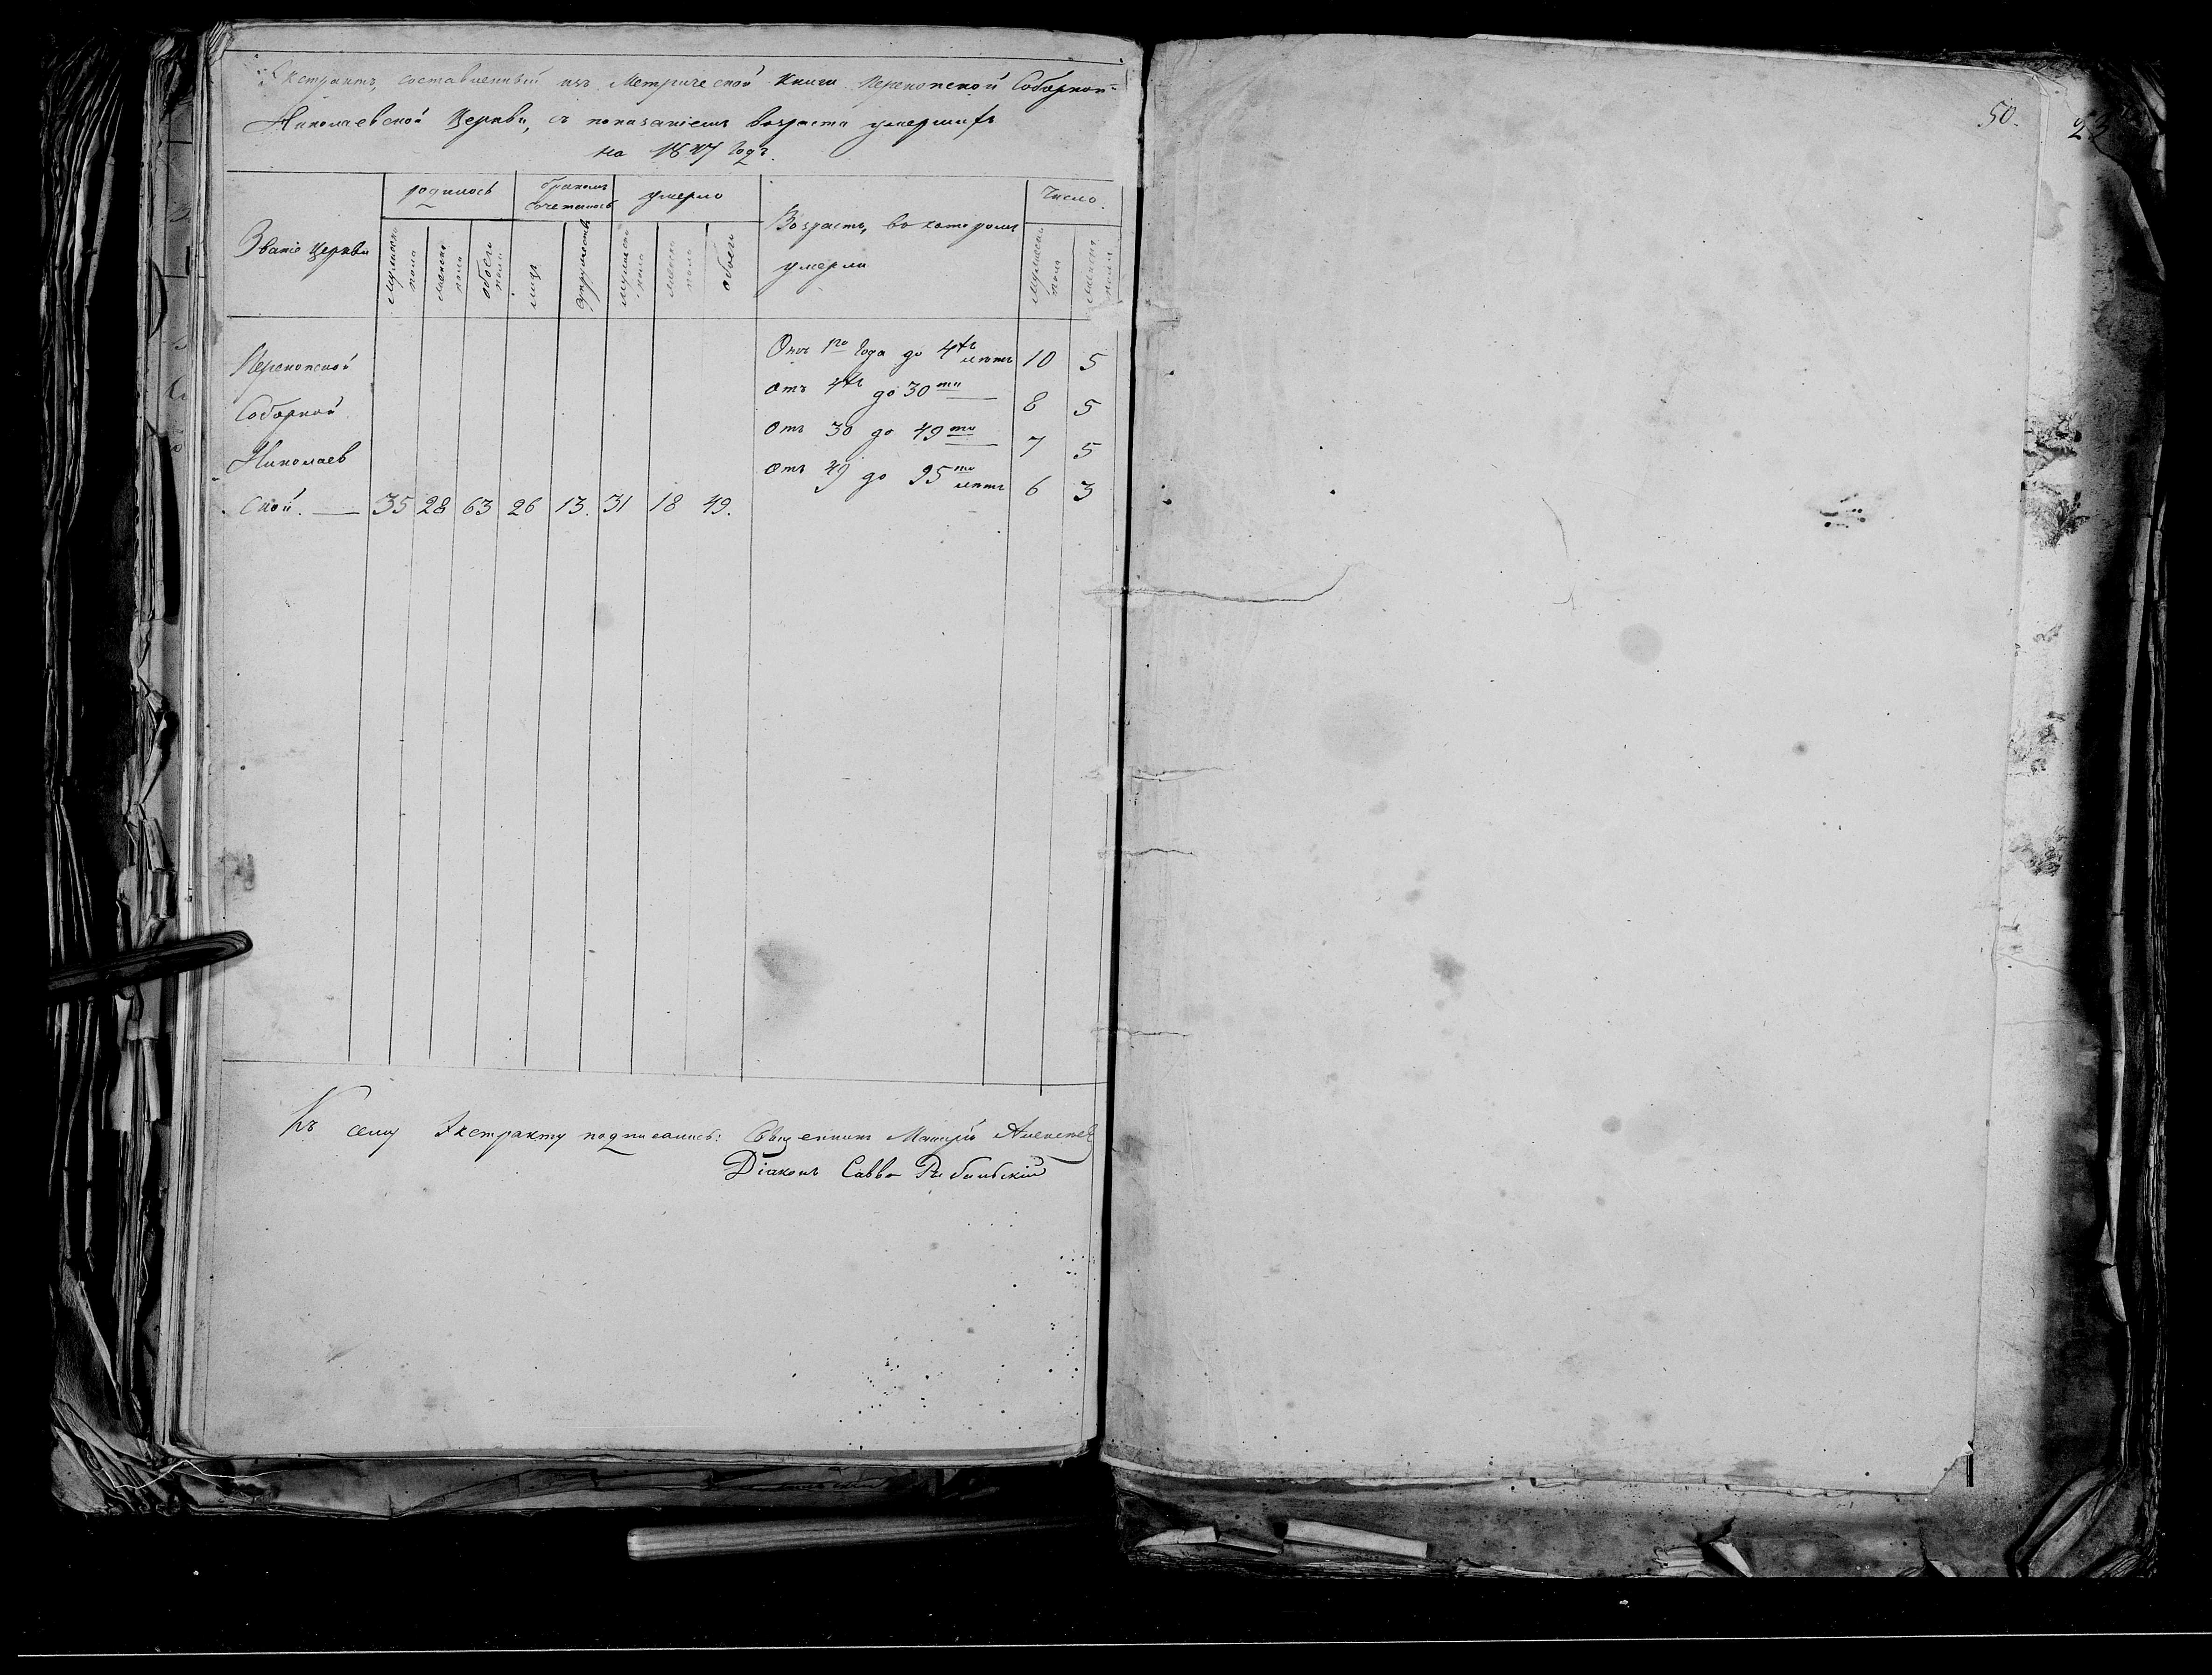 Экстрактъ, составленный изъ Метрической книги Перекопской Соборной
Николаевской Церкви, съ показаніемъ возраста умершихъ
на 1847 годъ.
Званіе Церкви
родилось
бракомъ сочеталось
умерло
Возрастъ, во которомъ умерли
Число.
мужеска пола
женска пола
обоего пола
лицъ
супружествъ
мужеска пола
женска пола
обоего
мужеска пола
женска пола
Перекопской
Соборной
Николаев
ской. — 35 28 63 26 13. 31 18 49.
Отъ 1го года до 4хъ лѣтъ 10 5
отъ 4хъ до 30ти — 8 5
отъ 30 до 49ти — 7 5
отъ 49 до 95ти лѣтъ 6 3
Къ сему Экстракту подписались: Священникъ Алексѣевъ
Діаконъ Савва
50.
23